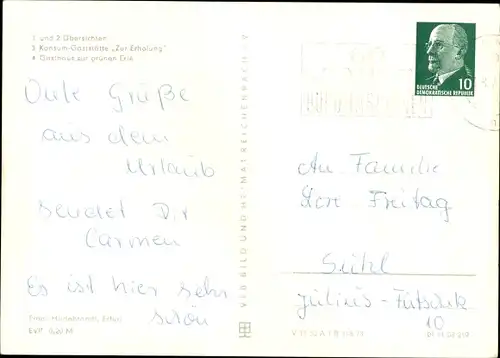 1 und 2 Übersichten
3 Konsum-Gaststätte „Zur Erholung"
4 Gasthaus zur grünen Erle
Gute Grüße
aus dem
Urlaub
sendet Dir
Carmen
Es ist hier sehr
schön
Foto: Hildebrandt, Erfurt
EVP 0,20 M
VEB BILD UND HEIMAT REICHENBACH i. V.
10
DEUTSCHE
DEMOKRATISCHE REPUBLIK
An Familie
Lore Freitag
Suhl
Julius-Futschik
10